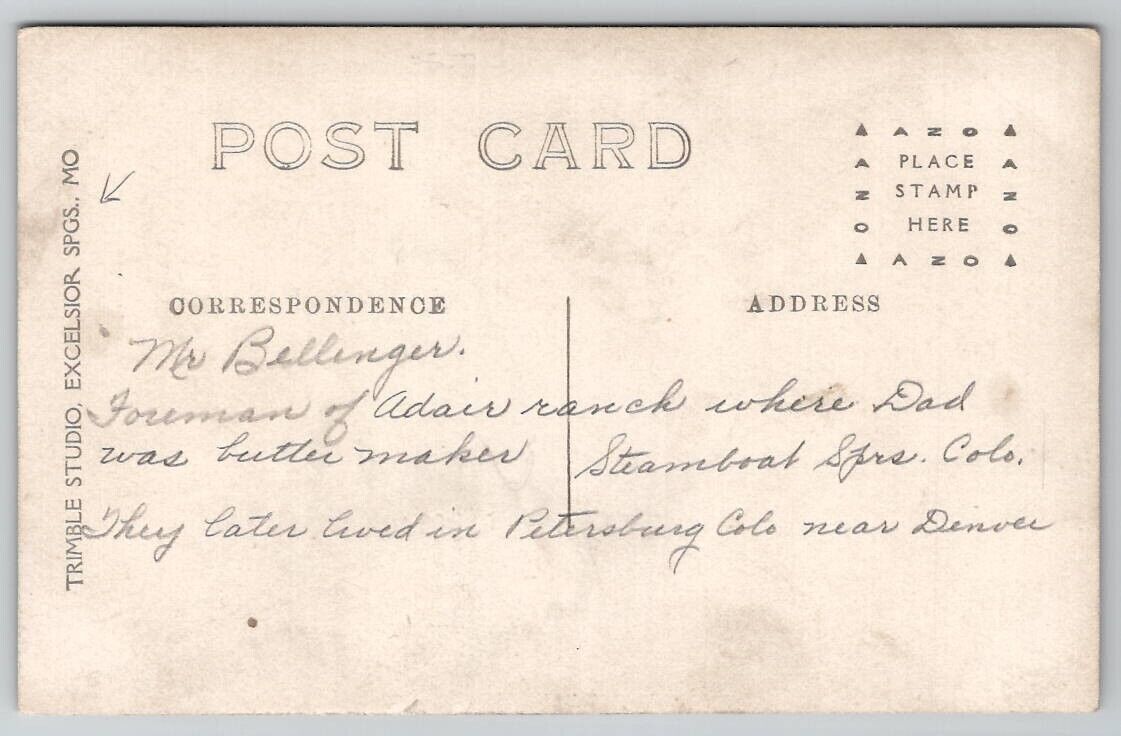 POST CARD
▲ A Z O ▲
A PLACE A
Z STAMP Z
O HERE O
▲ A Z O ▲
TRIMBLE STUDIO, EXCELSIOR SPGS., MO
CORRESPONDENCE
ADDRESS
Mr Bellinger.
Foreman of Adair ranch where Dad
was butter maker Steamboat Sprs. Colo.
They later lived in Petersburg Colo near Denver